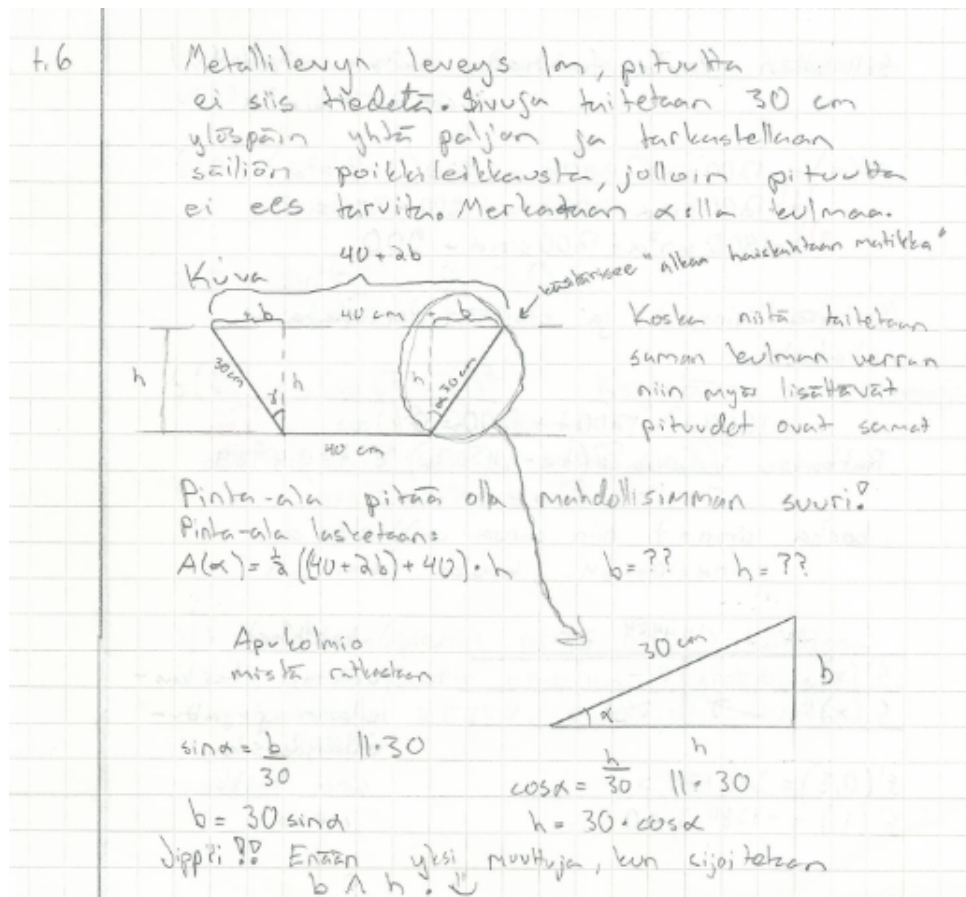 t.6
Metallilevyn leveys 1m, pituutta
ei siis tiedetä. Sivuja taitetaan 30 cm
ylöspäin yhtä paljon ja tarkastellaan
säiliön poikkileikkausta, jolloin pituutta
ei ees tarvita. Merkataan α:lla kulmaa.
Kuva
40+2b
"alkaa haiskahtaan matikka"
b
40 cm
b
30 cm
h
α
h
h
α
30 cm
40 cm
Koska niitä taitetaan
saman kulman verran
niin myös lisättävät
pituudet ovat samat
Pinta-ala pitää olla mahdollisimman suuri!
Pinta-ala lasketaan:
A(α) = ½ ((40+2b)+40)·h b=?? h=??
Apukolmio
mistä ratkastaan
30 cm
b
α
h
sinα = b/30 ||·30
cosα = h/30 ||·30
b = 30 sinα
h = 30·cosα
Jippii!! Enään yksi muuttuja, kun sijoitetaan
b ∧ h.